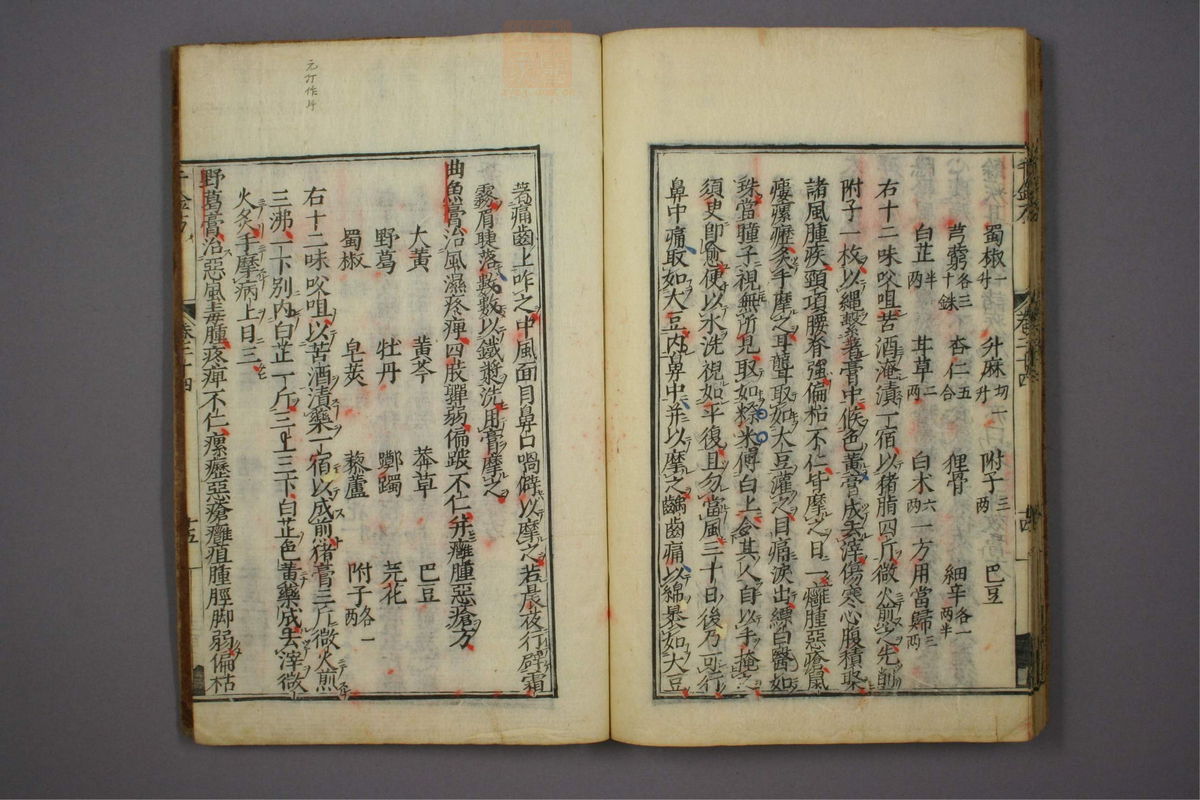 蜀椒一升 升麻切一升 附子三两 巴豆
芎藭各三十銖 杏仁五合 狸骨 細辛各一两半
白芷半两 甘草二两 白术六两 一方用當歸三两
右十二味㕮咀苦酒淹漬一宿以猪脂四斤微火煎之先削
附子一枚以縄繫著膏中候色黄膏成去滓傷寒心腹積聚
諸風腫疾頸項腰脊強偏枯不仁皆摩之日一癰腫惡瘡鼠
瘻瘰癧炙手摩之耳聾取如大豆灌之目痛淚出縹白瞖如
珠當瞳子視無所見取如穄米傅白上令其人自以手掩之
須臾卽愈便以水洗視如平復且勿當風三十日後乃可行
鼻中痛取如大豆内鼻中并以摩之齲齒痛以綿裹如大豆
著痛齒上咋之中風面目鼻口喎僻以摩之若晨夜行辟霜
霧眉睫落數數以鐵漿洗用膏摩之
曲魚膏治風濕疼痺四肢軃弱偏跛不仁并癰腫惡瘡方
大黄 黄芩 莽草 巴豆
野葛 牡丹 躑躅 芫花
蜀椒 皂莢 藜蘆 附子各一两
右十二味㕮咀以苦酒漬藥一宿以成煎猪膏三斤微火煎
三沸一下別内白芷一斤三上三下白芷色黄藥成去滓微
火炙手摩病上日三
野葛膏治惡風毒腫疼痺不仁瘰癧惡瘡癰疽腫脛脚弱偏枯
卷二十四
十五
元丁作斤